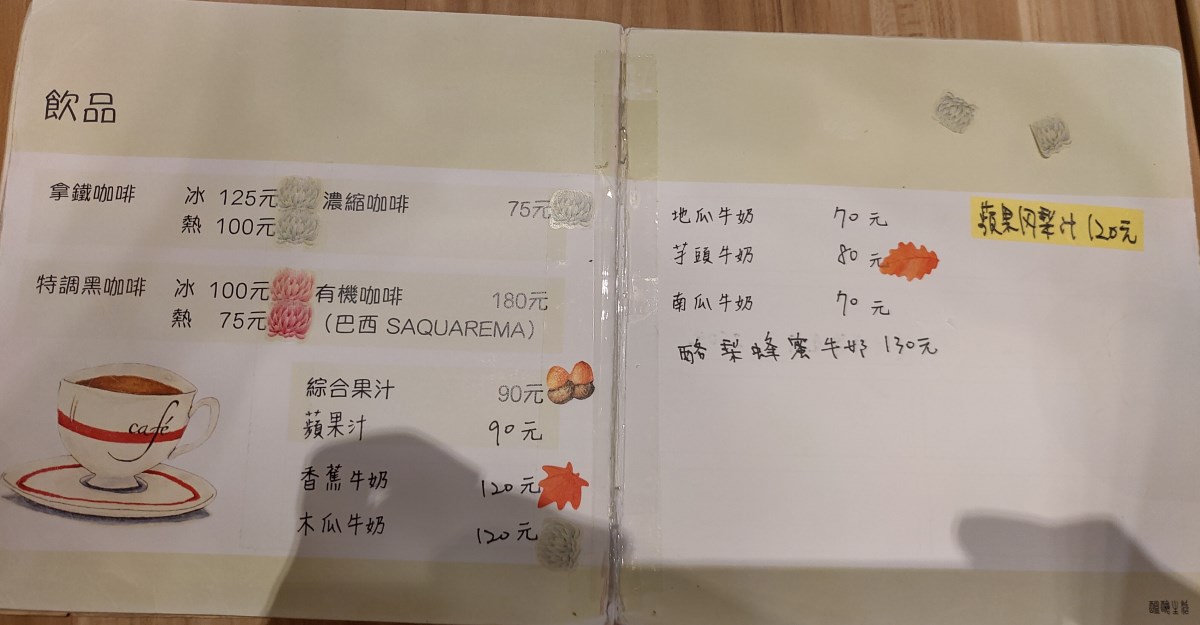 飲品
拿鐵咖啡 冰 125元
熱 100元
濃縮咖啡 75元
特調黑咖啡 冰 100元
熱 75元
有機咖啡 180元
（巴西 SAQUAREMA）
café
綜合果汁 90元
蘋果汁 90元
香蕉牛奶 120元
木瓜牛奶 120元
地瓜牛奶 70元
芋頭牛奶 80元
南瓜牛奶 70元
酪梨蜂蜜牛奶 130元
蘋果冈梨汁 120元